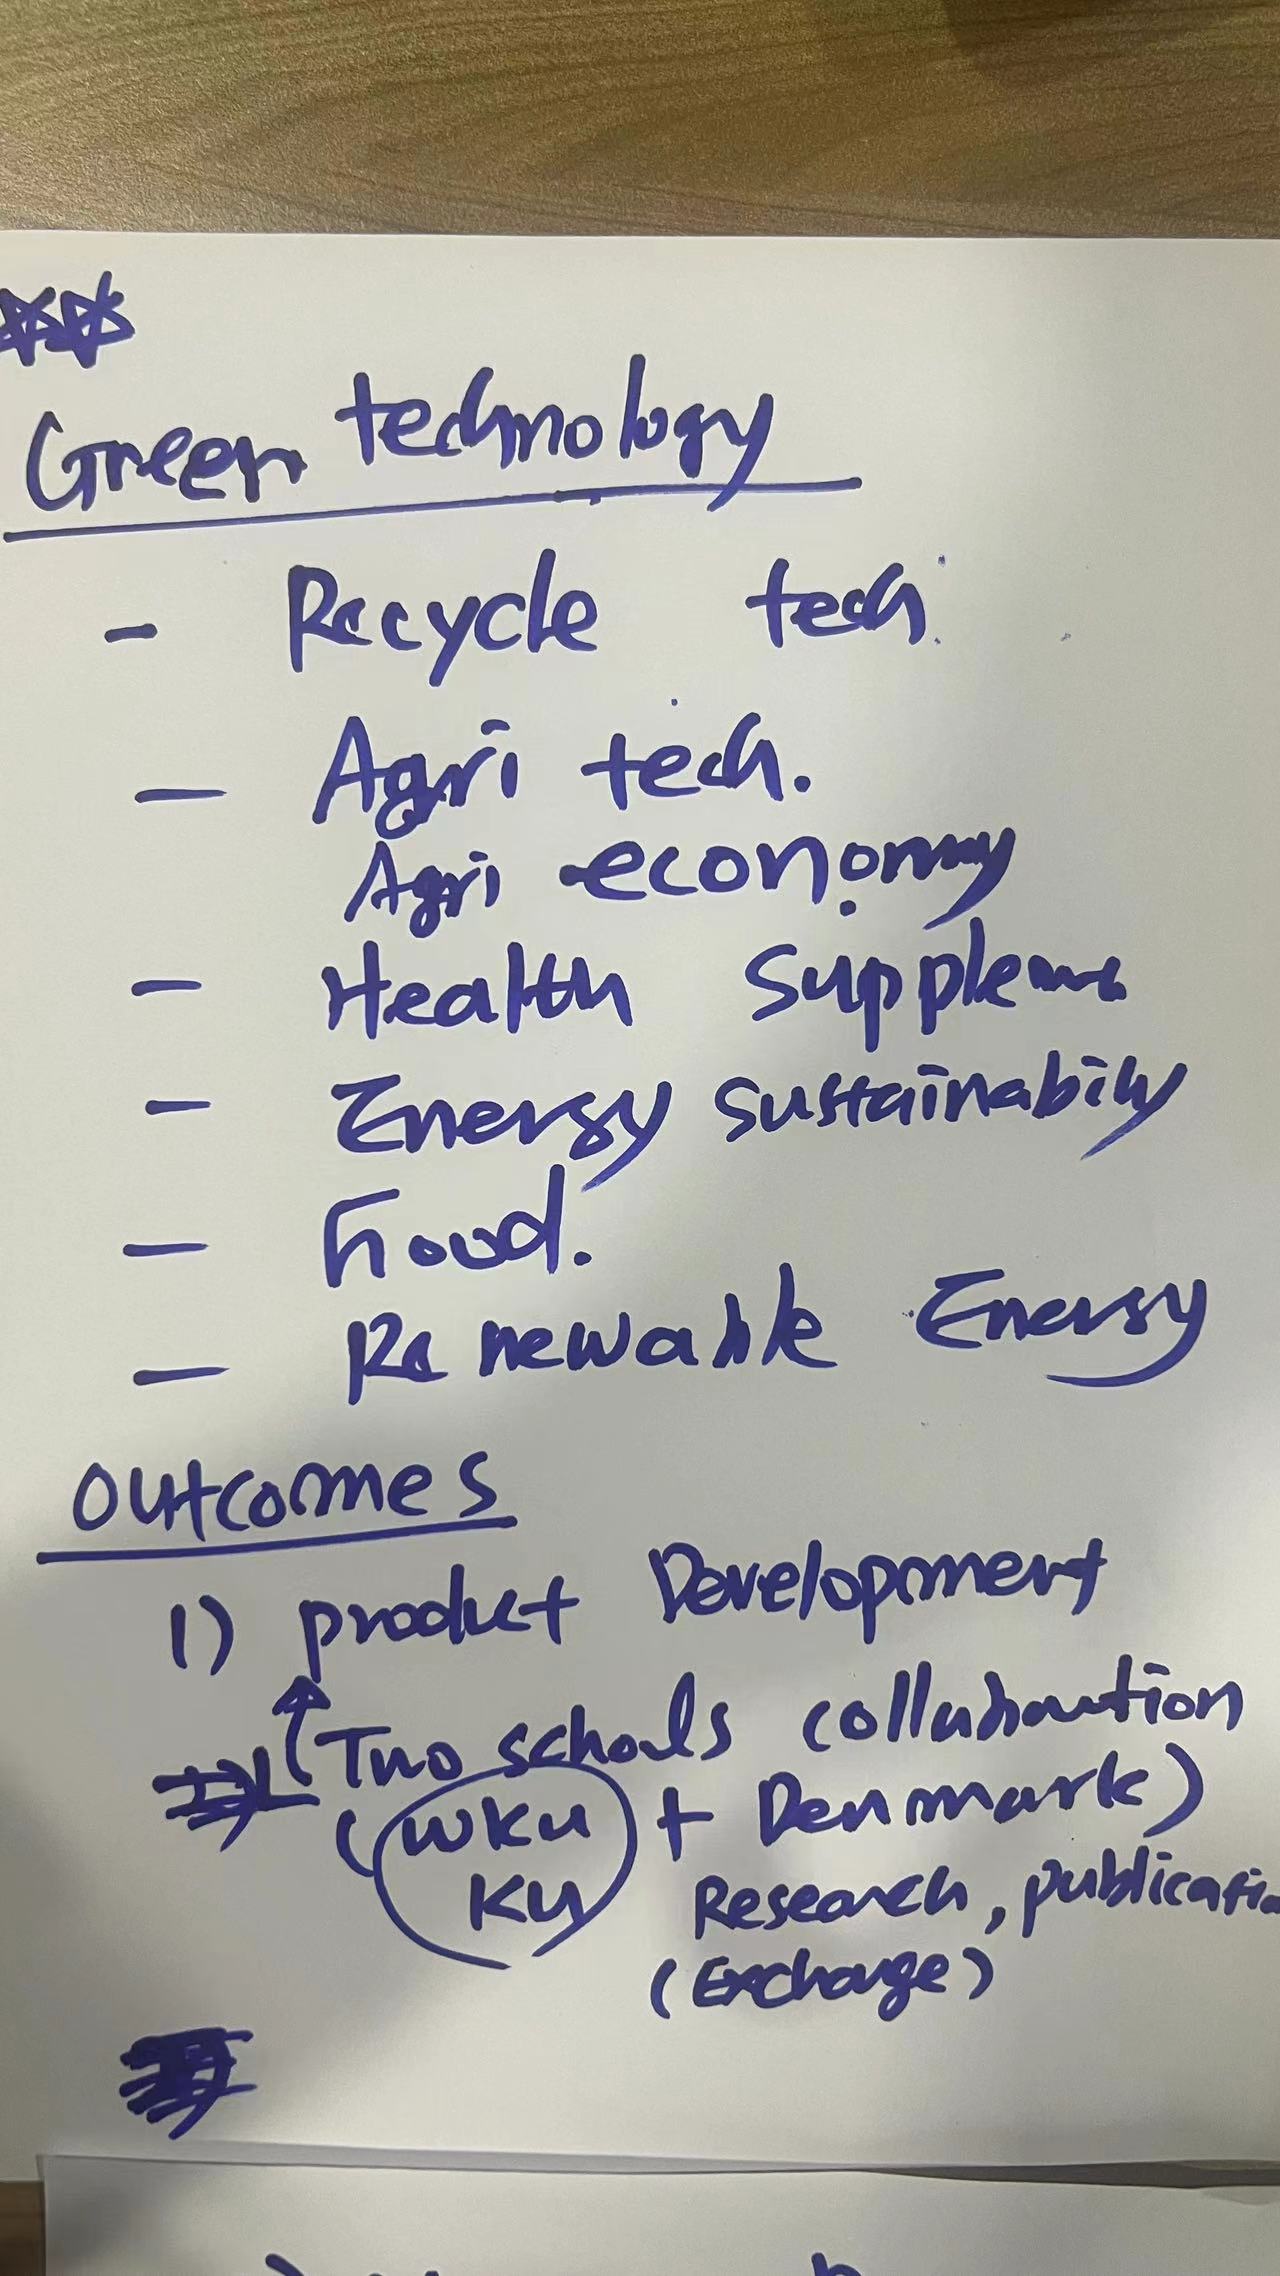 Green technology
- Recycle tech.
- Agri tech.
Agri economy
- Health
- Energy sustainability
- Food.
- Renewable Energy
Outcomes
1) product Development
Two schools collaboration
(WKU + Denmark)
KU Research, publicatio
(Exchange)